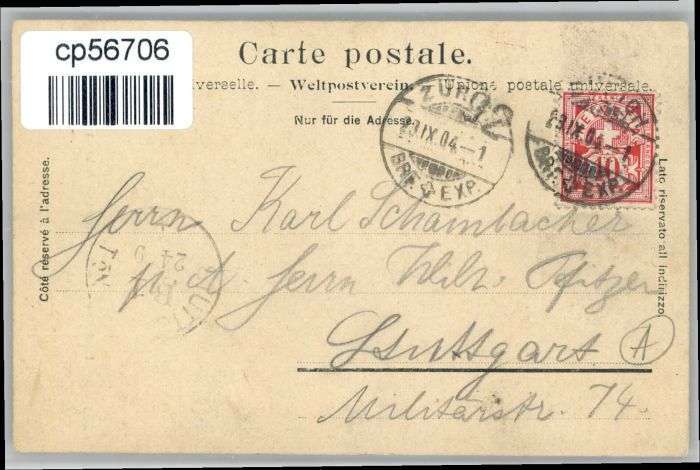 cp56706
Carte postale.
iverselle. — Weltpostverein. — Unione postale universale.
Nur für die Adresse.
ZÜRICH
23.IX.04.–1
BRF. EXP.
23.IX.04.–1
BRF. EXP.
10
Côté réservé à l'adresse.
Lato riservato all' indirizzo.
Herrn Karl Schambacher
Herrn Wilh. Pfitzer
Stuttgart
A
Militärstr. 74.